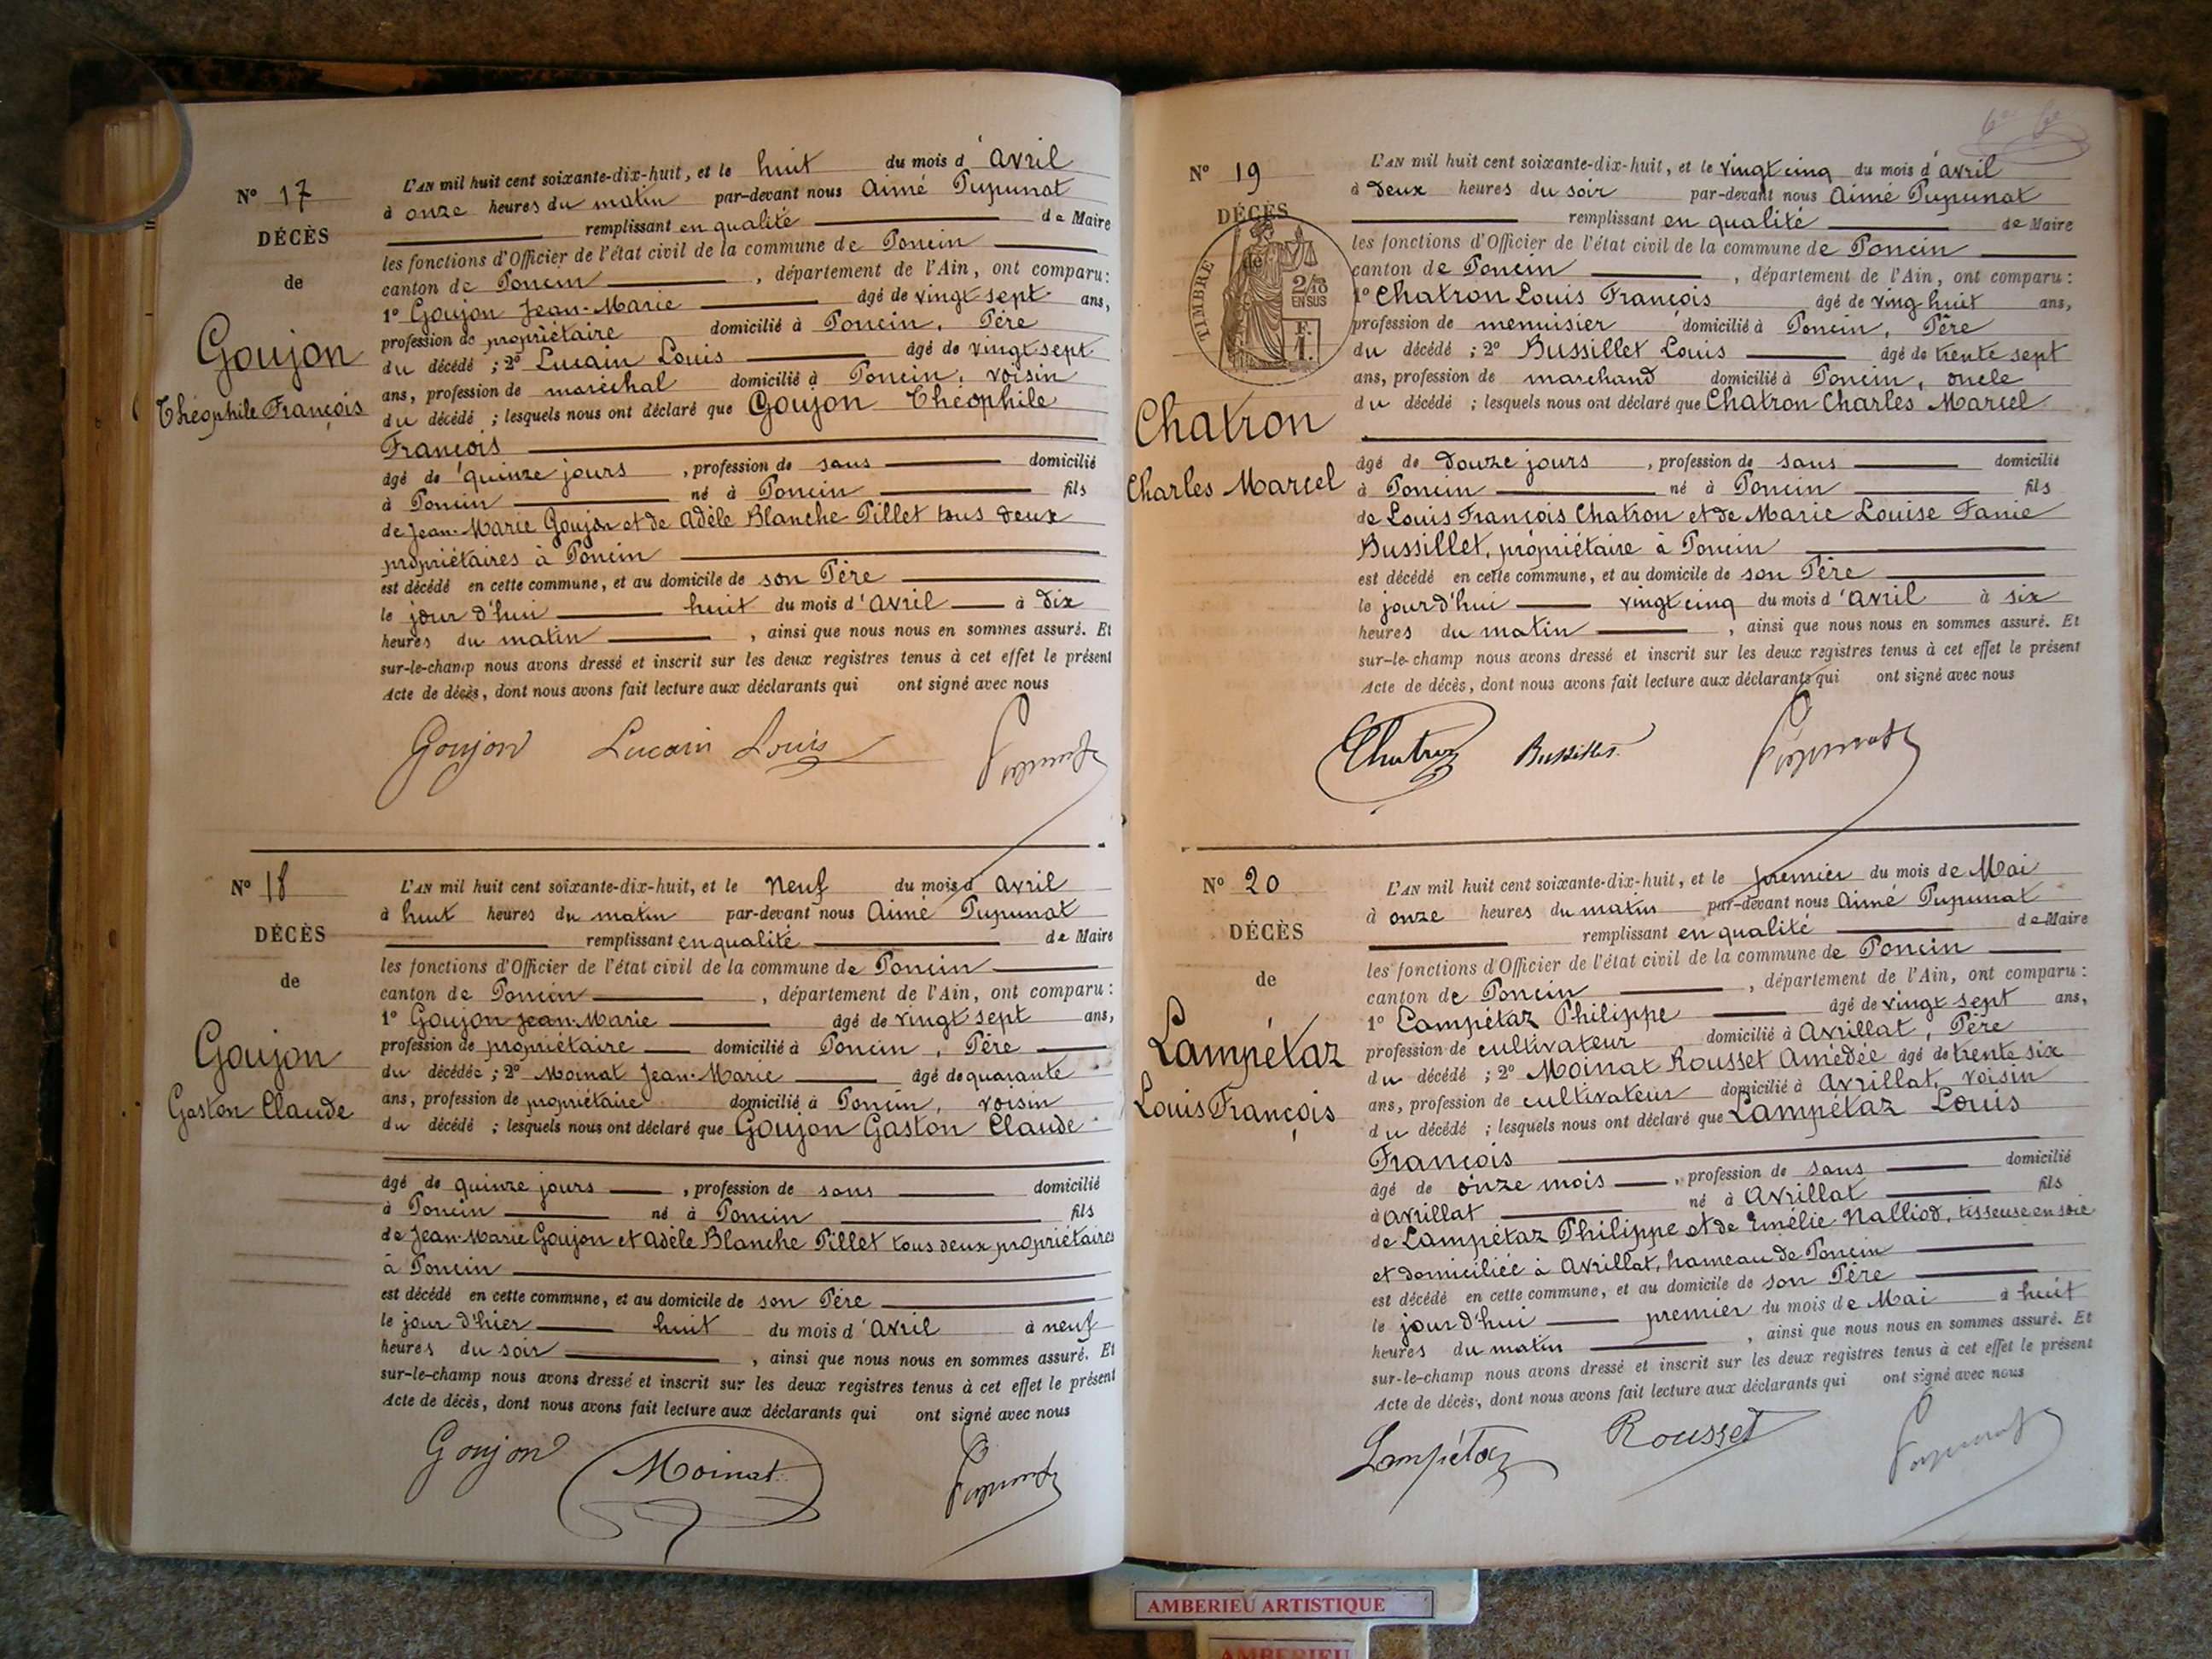 N° 17
DÉCÈS
de
Goujon
Théophile François
L'AN mil huit cent soixante-dix-huit, et le huit du mois d'Avril
à onze heures du matin par-devant nous Aimé Pupunat
remplissant en qualité de Maire
les fonctions d'Officier de l'état civil de la commune de Poncin
canton de Poncin, département de l'Ain, ont comparu:
1° Goujon Jean-Marie âgé de vingt sept ans,
profession de propriétaire domicilié à Poncin, Père
du décédé ; 2° Lucain Louis âgé de vingt sept
ans, profession de maréchal domicilié à Poncin, voisin
du décédé ; lesquels nous ont déclaré que Goujon Théophile
François
âgé de quinze jours, profession de sans domicilié
à Poncin né à Poncin fils
de Jean-Marie Goujon et de Adèle Blanche Pillet tous deux
propriétaires à Poncin
est décédé en cette commune, et au domicile de son Père
le jour d'hui huit du mois d'Avril à dix
heures du matin, ainsi que nous nous en sommes assuré. Et
sur-le-champ nous avons dressé et inscrit sur les deux registres tenus à cet effet le présent
Acte de décès, dont nous avons fait lecture aux déclarants qui ont signé avec nous
Goujon Lucain Louis Pupunat
N° 18
DÉCÈS
de
Goujon
Gaston Claude
L'AN mil huit cent soixante-dix-huit, et le neuf du mois d'avril
à huit heures du matin par-devant nous Aimé Pupunat
remplissant en qualité de Maire
les fonctions d'Officier de l'état civil de la commune de Poncin
canton de Poncin, département de l'Ain, ont comparu:
1° Goujon Jean-Marie âgé de vingt sept ans,
profession de propriétaire domicilié à Poncin, Père
du décédée ; 2° Moinat Jean-Marie âgé de quarante
ans, profession de propriétaire domicilié à Poncin, voisin
du décédé ; lesquels nous ont déclaré que Goujon Gaston Claude
âgé de quinze jours, profession de sans domicilié
à Poncin né à Poncin fils
de Jean-Marie Goujon et Adèle Blanche Pillet tous deux propriétaires
à Poncin
est décédé en cette commune, et au domicile de son Père
le jour d'hier huit du mois d'Avril à neuf
heures du soir, ainsi que nous nous en sommes assuré. Et
sur-le-champ nous avons dressé et inscrit sur les deux registres tenus à cet effet le présent
Acte de décès, dont nous avons fait lecture aux déclarants qui ont signé avec nous
Goujon Moinat Pupunat
N° 19
DÉCÈS
de
TIMBRE
2/10
EN SUS
F.
1.
Chatron
Charles Marcel
L'AN mil huit cent soixante-dix-huit, et le vingt cinq du mois d'avril
à deux heures du soir par-devant nous Aimé Pupunat
remplissant en qualité de Maire
les fonctions d'Officier de l'état civil de la commune de Poncin
canton de Poncin, département de l'Ain, ont comparu:
1° Chatron Louis François âgé de ving huit ans,
profession de menuisier domicilié à Poncin, Père
du décédé ; 2° Bussillet Louis âgé de trente sept
ans, profession de marchand domicilié à Poncin, oncle
du décédé ; lesquels nous ont déclaré que Chatron Charles Marcel
âgé de douze jours, profession de sans domicilié
à Poncin né à Poncin fils
de Louis François Chatron et de Marie Louise Fanie
Bussillet, propriétaire à Poncin
est décédé en cette commune, et au domicile de son Père
le jour d'hui vingt cinq du mois d'avril à six
heures du matin, ainsi que nous nous en sommes assuré. Et
sur-le-champ nous avons dressé et inscrit sur les deux registres tenus à cet effet le présent
Acte de décès, dont nous avons fait lecture aux déclarants qui ont signé avec nous
Chatron Bussillet Pupunat
N° 20
DÉCÈS
de
Lampétaz
Louis François
L'AN mil huit cent soixante-dix-huit, et le premier du mois de Mai
à onze heures du matin par-devant nous Aimé Pupunat
remplissant en qualité de Maire
les fonctions d'Officier de l'état civil de la commune de Poncin
canton de Poncin, département de l'Ain, ont comparu:
1° Lampétaz Philippe âgé de vingt sept ans,
profession de cultivateur domicilié à Avrillat, Père
du décédé ; 2° Moinat Rousset Amédée âgé de trente six
ans, profession de cultivateur domicilié à Avrillat, voisin
du décédé ; lesquels nous ont déclaré que Lampétaz Louis
François
âgé de onze mois, profession de sans domicilié
à Avrillat né à Avrillat fils
de Lampétaz Philippe et de Emélie Nalliod, tisseuse en soie
et domiciliée à Avrillat, hameau de Poncin
est décédé en cette commune, et au domicile de son Père
le jour d'hui premier du mois de Mai à huit
heures du matin, ainsi que nous nous en sommes assuré. Et
sur-le-champ nous avons dressé et inscrit sur les deux registres tenus à cet effet le présent
Acte de décès, dont nous avons fait lecture aux déclarants qui ont signé avec nous
Lampétaz Rousset Pupunat
AMBERIEU ARTISTIQUE
AMBERIEU